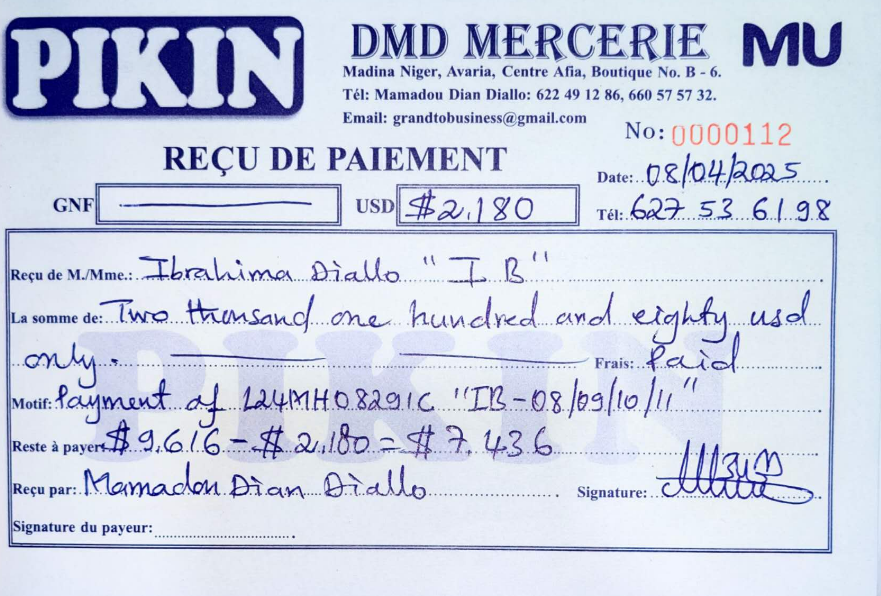 PIKIN
DMD MERCERIE
MU
Madina Niger, Avaria, Centre Afia, Boutique No. B - 6.
Tél: Mamadou Dian Diallo: 622 49 12 86, 660 57 57 32.
Email: grandtobusiness@gmail.com
No: 0000112
REÇU DE PAIEMENT
Date: 08/04/2025
GNF
USD $2.180
Tél: 627 53 61 98
Reçu de M./Mme.: Ibrahima Diallo "I B"
La somme de: Two thousand one hundred and eighty usd
only. Frais: Paid
Motif: Payment of L24MH08291C "IB-08/09/10/11"
Reste à payer: $9.616 - $2.180 = $7.436
Reçu par: Mamadou Dian Diallo Signature:
Signature du payeur:
PIKIN